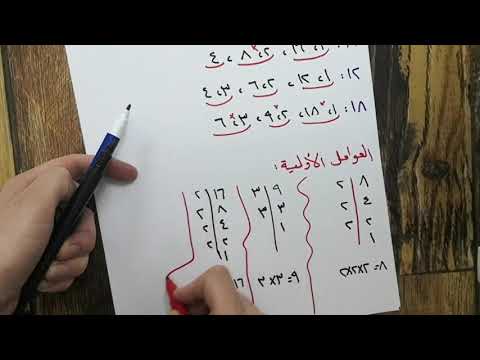 ٢، ٨، ٤
١٢: ١، ١٢، ٢، ٦، ٣، ٤
١٨: ١، ١٨، ٢، ٩، ٣، ٦
العوامل الأولية:
٨ ٢
٤ ٢
٢ ٢
١
٢×٢×٢=٨
٩ ٣
٣ ٣
١
٣×٣=٩
١٦ ٢
٨ ٢
٤ ٢
٢ ٢
١
١٦